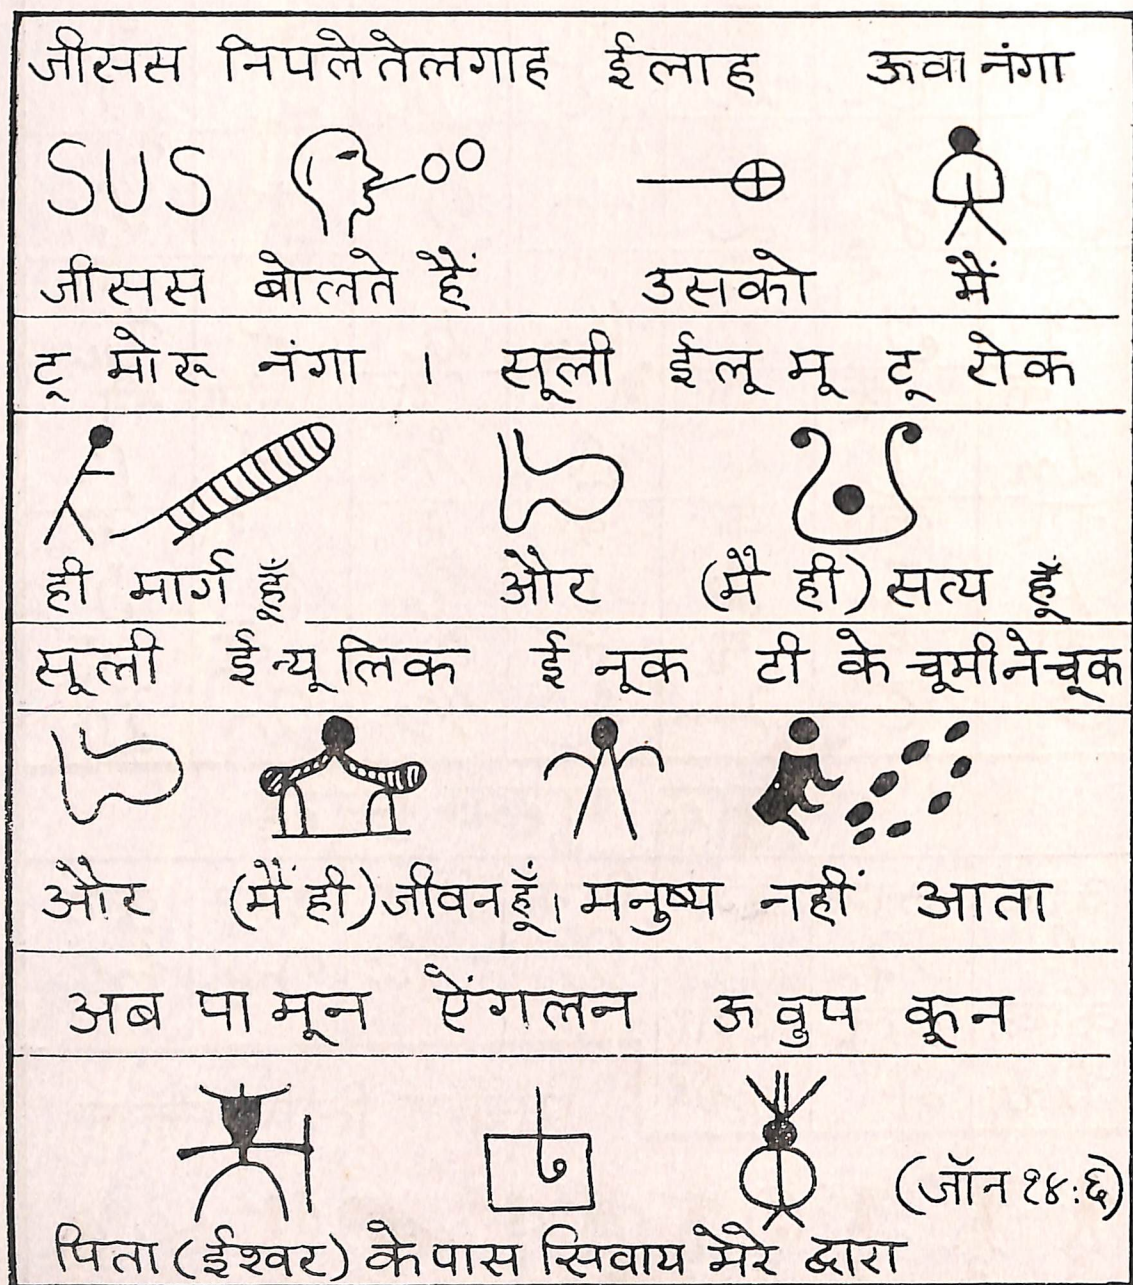 जीसस निपलेतेलगाह ईलाह ऊवा नंगा
SUS
जीसस बोलते हैं उसको मैं
टू मोरू नंगा । सूली ईलू मू टू रोक
ही मार्ग हूँ और (मै ही) सत्य हूँ
सूली ई न्यू लिक ई नूक टी के चूमीनेचूक
और (मैं ही) जीवन हूँ। मनुष्य नहीं आता
अब पा मून ऐंगलन ऊ वुप कून
(जॉन १४:६)
पिता (ईश्वर) के पास सिवाय मेरे द्वारा